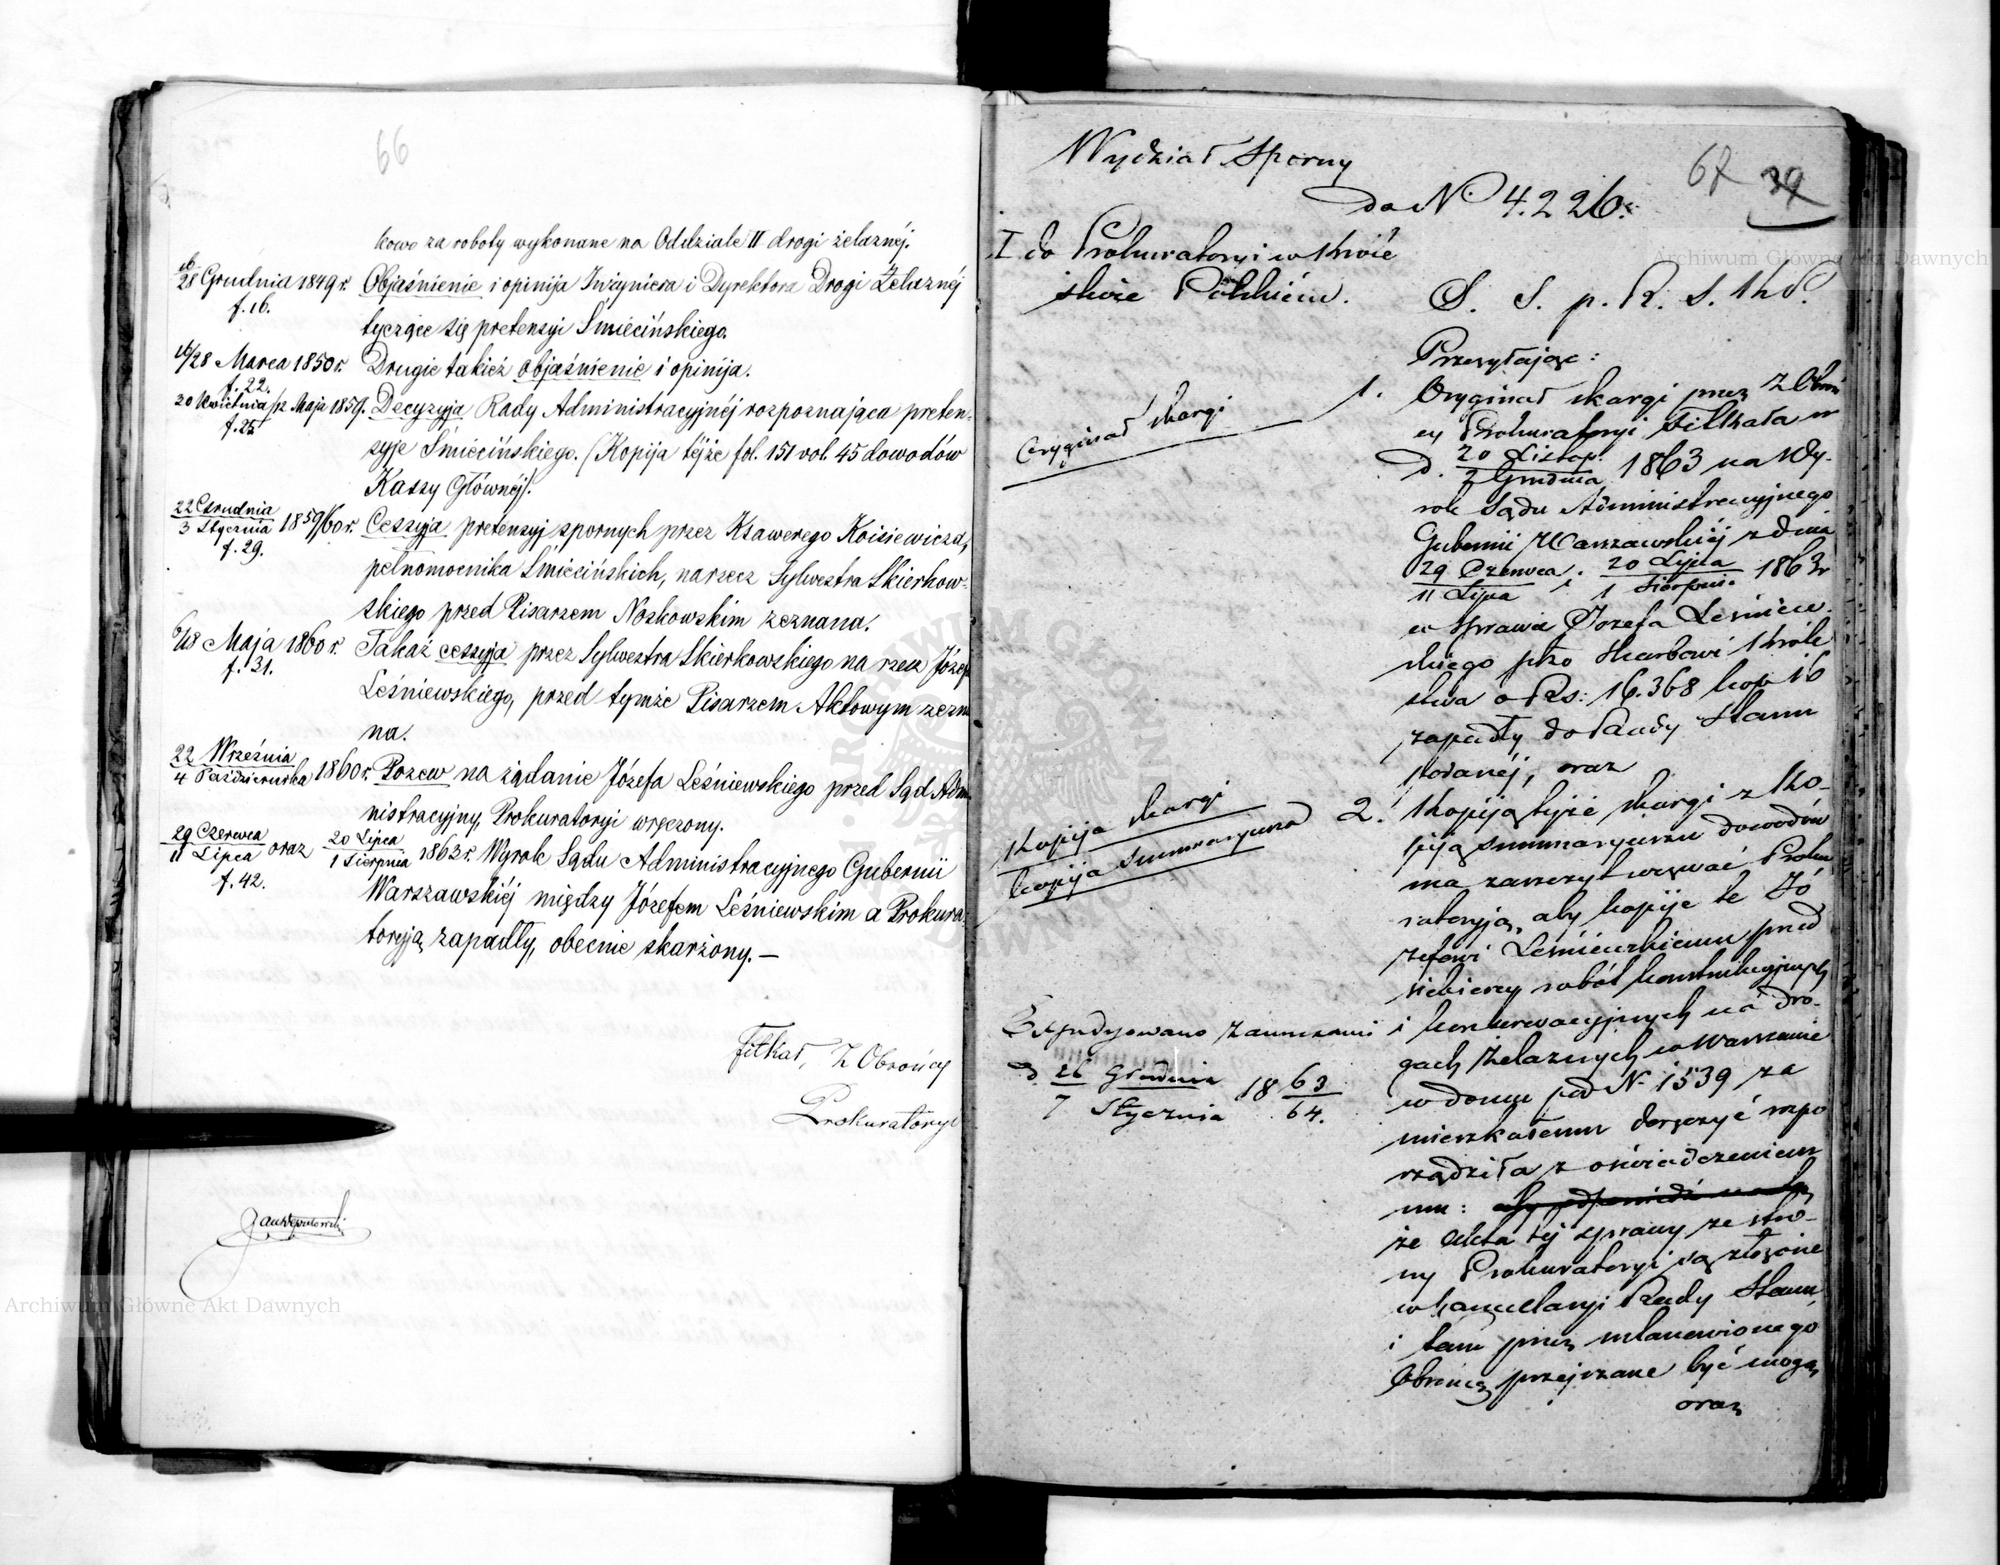 66
kowo za roboty wykonane na Oddziale II drogi żelaznéj.
16/28 Grudnia 1849 r. Objaśnienie i opinija Inżyniera i Dyrektora Drogi Żelaznéj
f. 16.
tyczące się pretensyi Śmiecińskiego.
16/28 Marca 1850 r. Drugie takież objaśnienie i opinija.
f. 22.
30 Kwietnia/12 Maja 1857. Decyzyja Rady Administracyjnéj rozpoznająca preten-
f. 25
syje Śmiecińskiego. (Kopija téjże fol. 151 vol. 45 dowodów
Kassy Głównéj).
22 Grudnia/3 Stycznia 1859/60 r. Cessyja pretensyj spornych przez Ksawerego Koisiewicza,
f. 29.
pełnomocnika Śmiecińskich, narzecz Sylwestra Skierkow-
skiego przed Pisarzem Noskowskim zeznana.
6/18 Maja 1860 r. Takaż cessyja przez Sylwestra Skierkowskiego na rzecz Józefa
f. 31.
Leśniewskiego, przed tymże Pisarzem Aktowym zezna
na.
22 Września/4 Października 1860 r. Pozew na żądanie Józefa Leśniewskiego przed Sąd Admi
nistracyjny, Prokuratoryi wręczony.
29 Czerwca/11 Lipca oraz 20 Lipca/1 Sierpnia 1863 r. Wyrok Sądu Administracyjnego Gubernii
f. 42.
Warszawskiéj między Józefem Leśniewskim a Prokura-
toryją zapadły, obecnie skarżony. —
Filkał, Z Obrońcy
Prokuratoryi
Wydział Sporny
67 39
do N. 4.226.
I do Prokuratoryi w Króle
stwie Polskiém.
S. S. p. R. S. Kr.
Przesyłając:
Oryginał skargi
1. Oryginał skargi przez Z Obroń
cy Prokuratoryi Filkała w
d. 20 Listop./2 Grudnia 1863 na Wy-
rok Sądu Administracyjnego
Gubernii Warszawskiéj z dnia
29 Czerwca/11 Lipca i 20 Lipca/1 Sierpnia 1863 r
w sprawie Józefa Leśniew
skiego pko Skarbowi Króle
stwa o Rs: 16.368 kop 16
zapadły do Rady Stanu
podanéj, oraz
Kopija skargi
kopija summaryusza
2. Kopiją téjże skargi z ko-
piją summaryusza dowodów
ma zaszczyt wezwać Proku
ratoryją, aby kopije te Jó
zefowi Leśniewskiemu przed
siebiercy robót konstrukcyjnych
i konserwacyjnych na dro-
gach żelaznych w Warszawie
w domu pod N. 1539 za
mieszkałemu doręczyć rozpo
rządziła z oświadczeniem
mu:
że akta téj sprawy ze stro-
ny Prokuratoryi są złożone
w kancellaryi Rady Stanu
i tam przez ustanowionego
Obrońcę przejrzane być mogą
oraz
Expedyowano z annexami
d. 26 Grudnia/7 Stycznia 1863/64.
Archiwum Główne Akt Dawnych
Archiwum Główne Akt Dawnych
ARCHIWUM GŁÓWNE AKT DAWNYCH